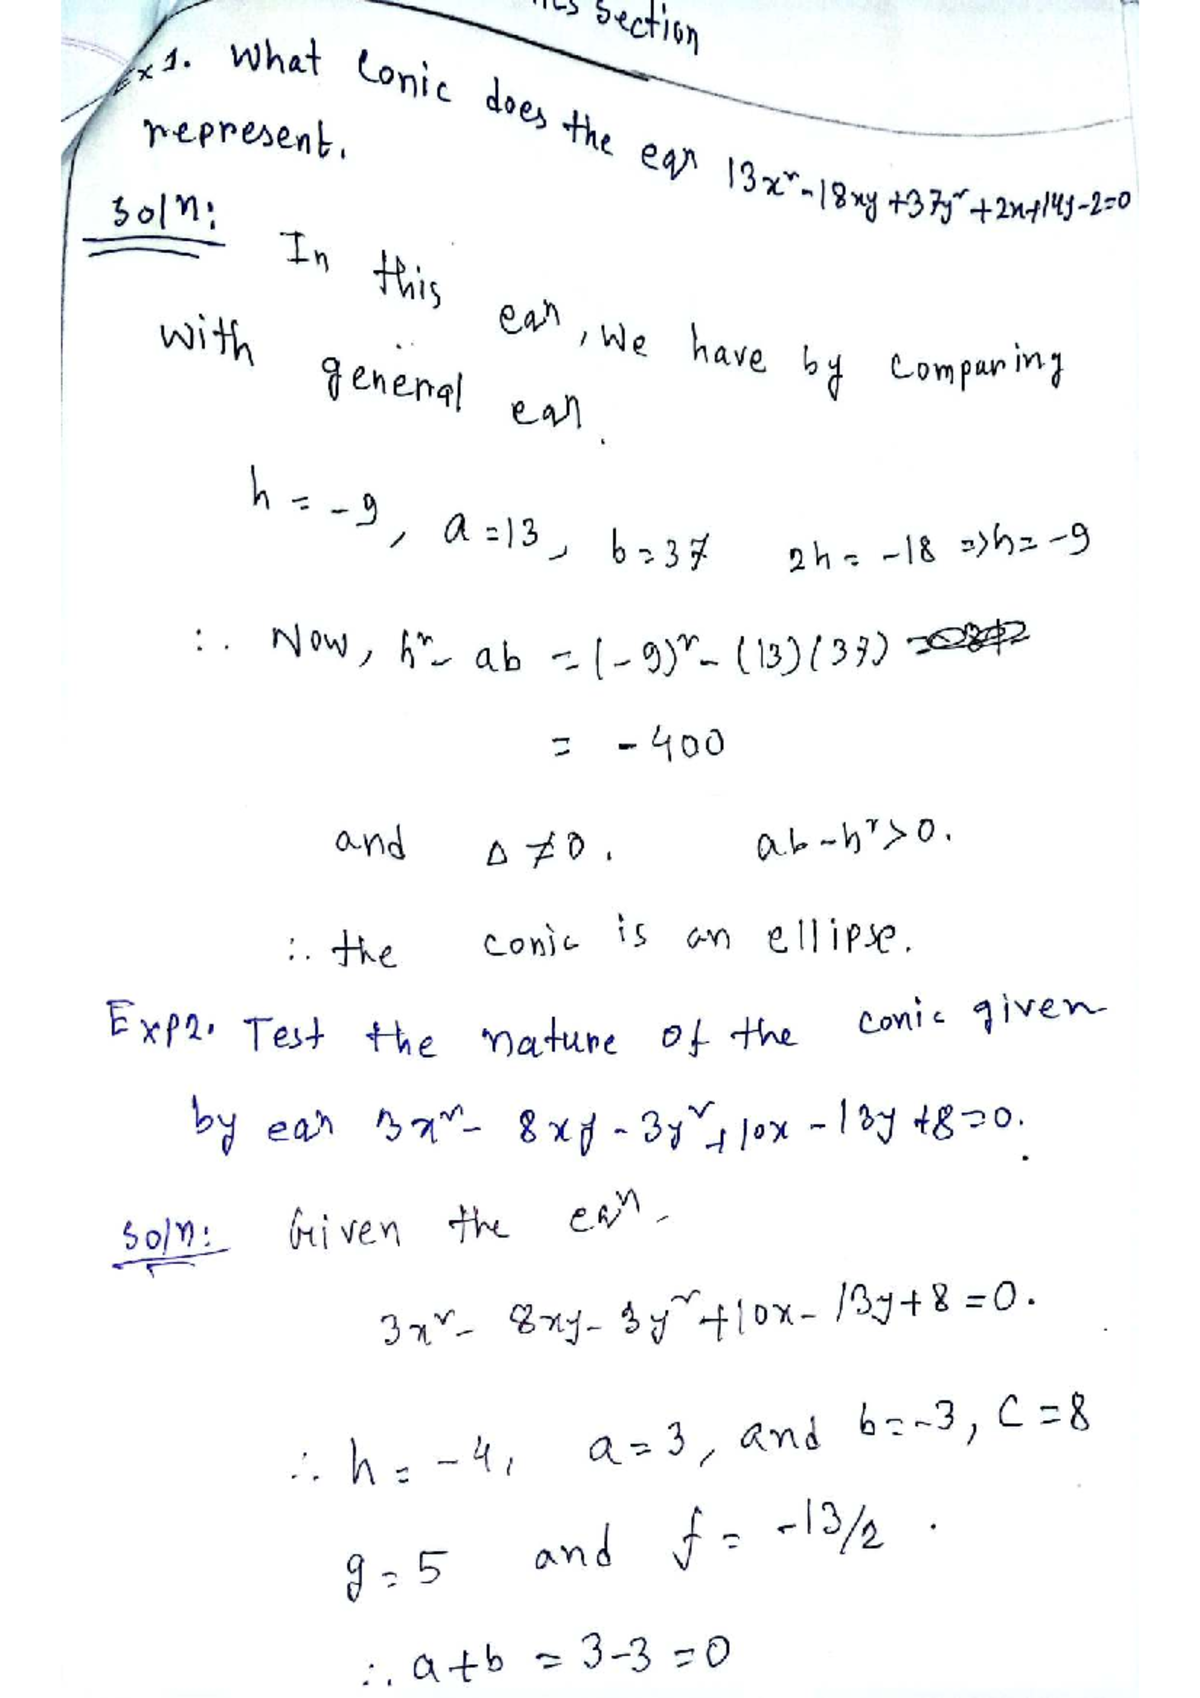 Section
Ex 1. What Conic does the eqn 13x² - 18xy + 37y² + 2x + 14y - 2 = 0
represent.
Soln:
In this eqn, we have by comparing
with general eqn.
h = -9, a = 13, b = 37 2h = -18 => h = -9
∴ Now, h² - ab = (-9)² - (13)(37)
= -400
and Δ ≠ 0. ab - h² > 0.
∴ the conic is an ellipse.
Exp2. Test the nature of the conic given
by eqn 3x² - 8xy - 3y² + 10x - 13y + 8 = 0.
Soln: Given the eqn -
3x² - 8xy - 3y² + 10x - 13y + 8 = 0.
∴ h = -4, a = 3, and b = -3, C = 8
g = 5 and f = -13/2 .
∴ a + b = 3 - 3 = 0